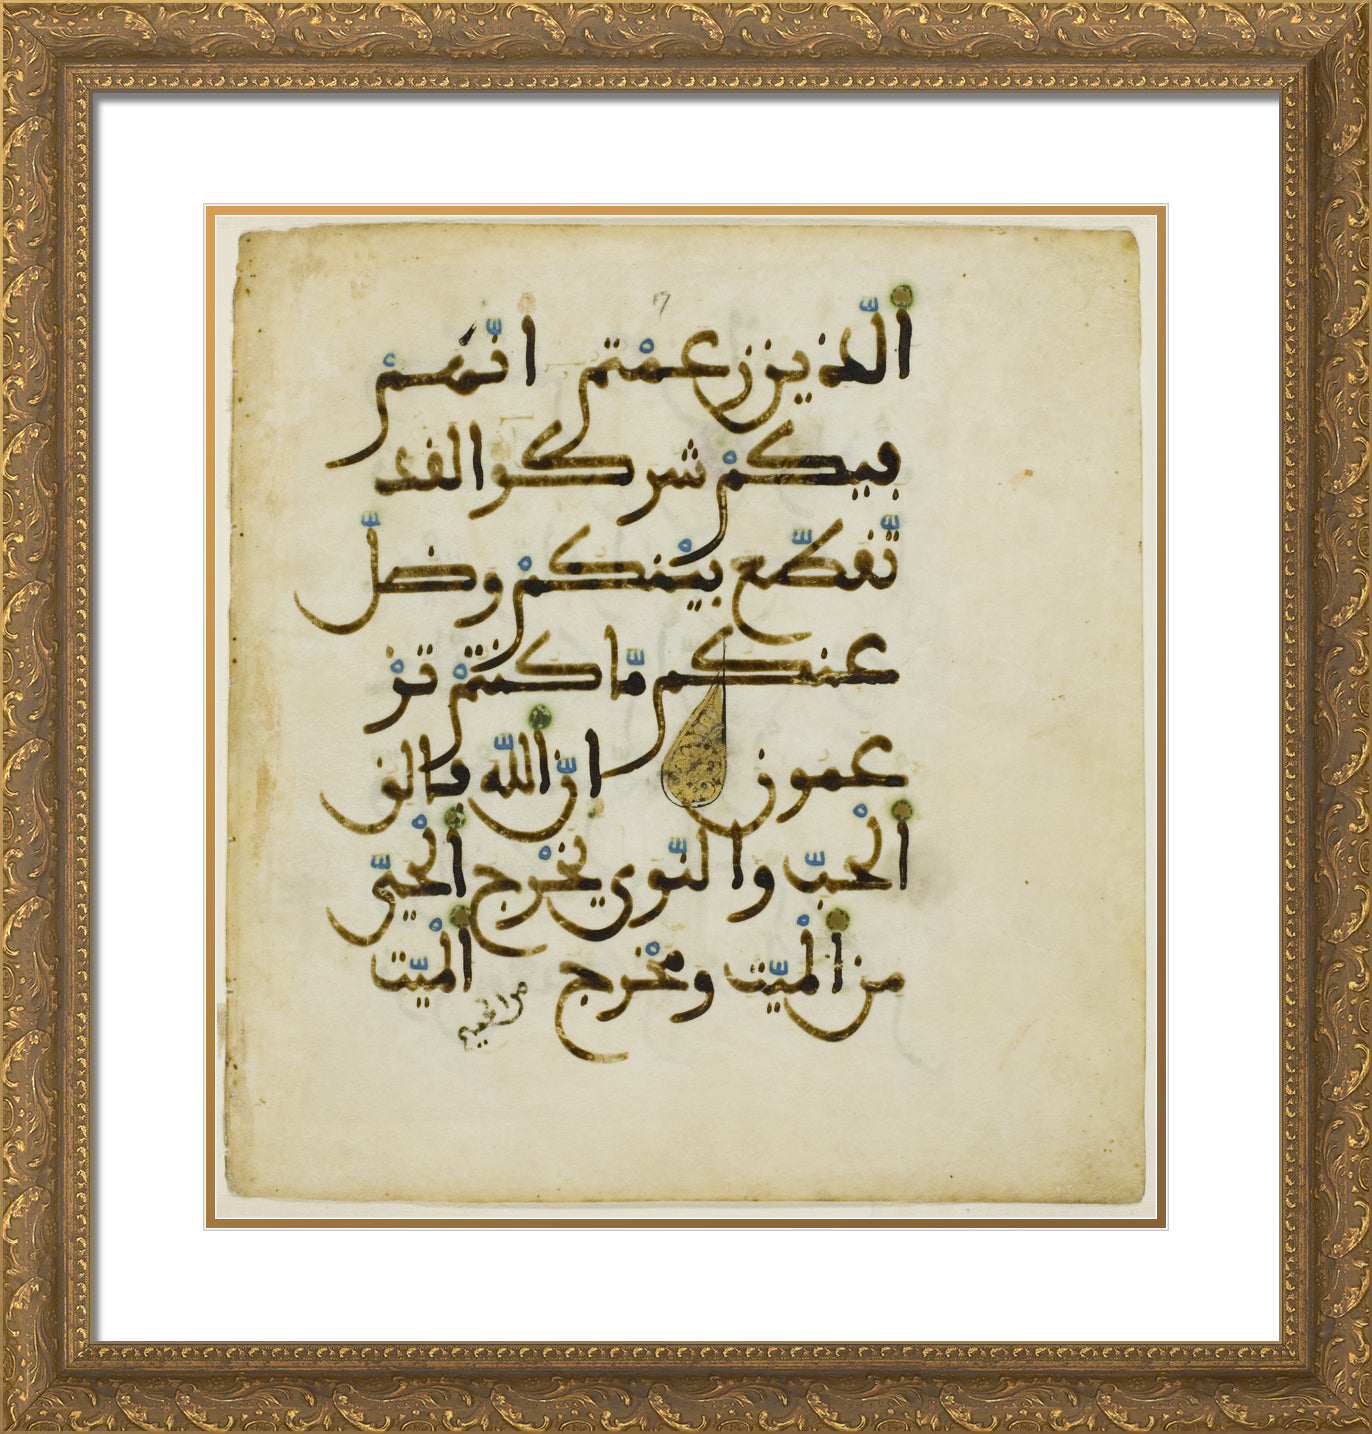 الّذين زعمْتم انّهمْ
فيكمْ شركوا لقد
تّقطّع بيْنكمْ وضلّ
عنكم مّا كنْتمْ تزْ
عمون انّ اللّه فالق
الْحبّ والنّوى يخْرج الْحيّ
من الْميّت ومخْرج الْميّت
من الحي